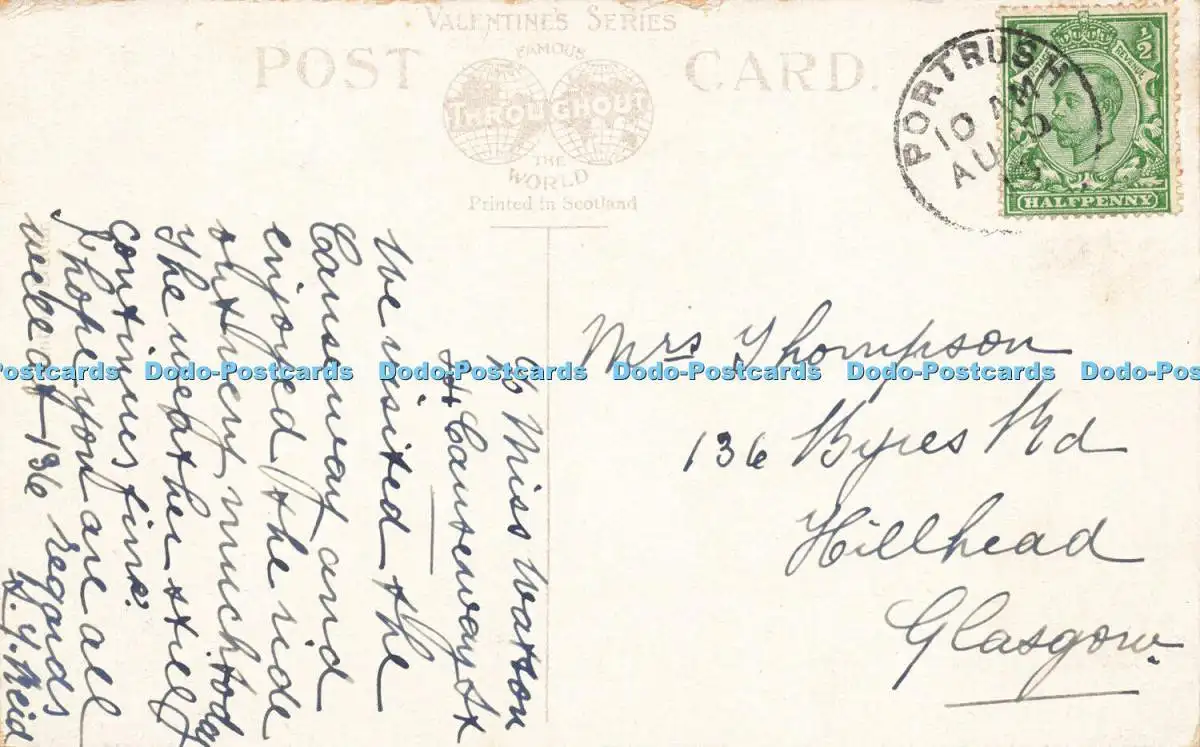 VALENTINE'S SERIES
POST CARD.
FAMOUS
THROUGHOUT
THE
WORLD
Printed in Scotland
PORTRUSH
10 AM
AU
½
REVENUE
HALFPENNY
c/o Miss Watson
44 Causeway St
We visited the
Causeway and
enjoyed the ride
out very much today
The weather still
continues fine.
I hope you are all
well at 136 regards
Reid
Mrs Thompson
136 Byres Rd
Hillhead
Glasgow.
Dodo-Postcards Dodo-Postcards Dodo-Postcards Dodo-Postcards Dodo-Postcards Dodo-Postcards